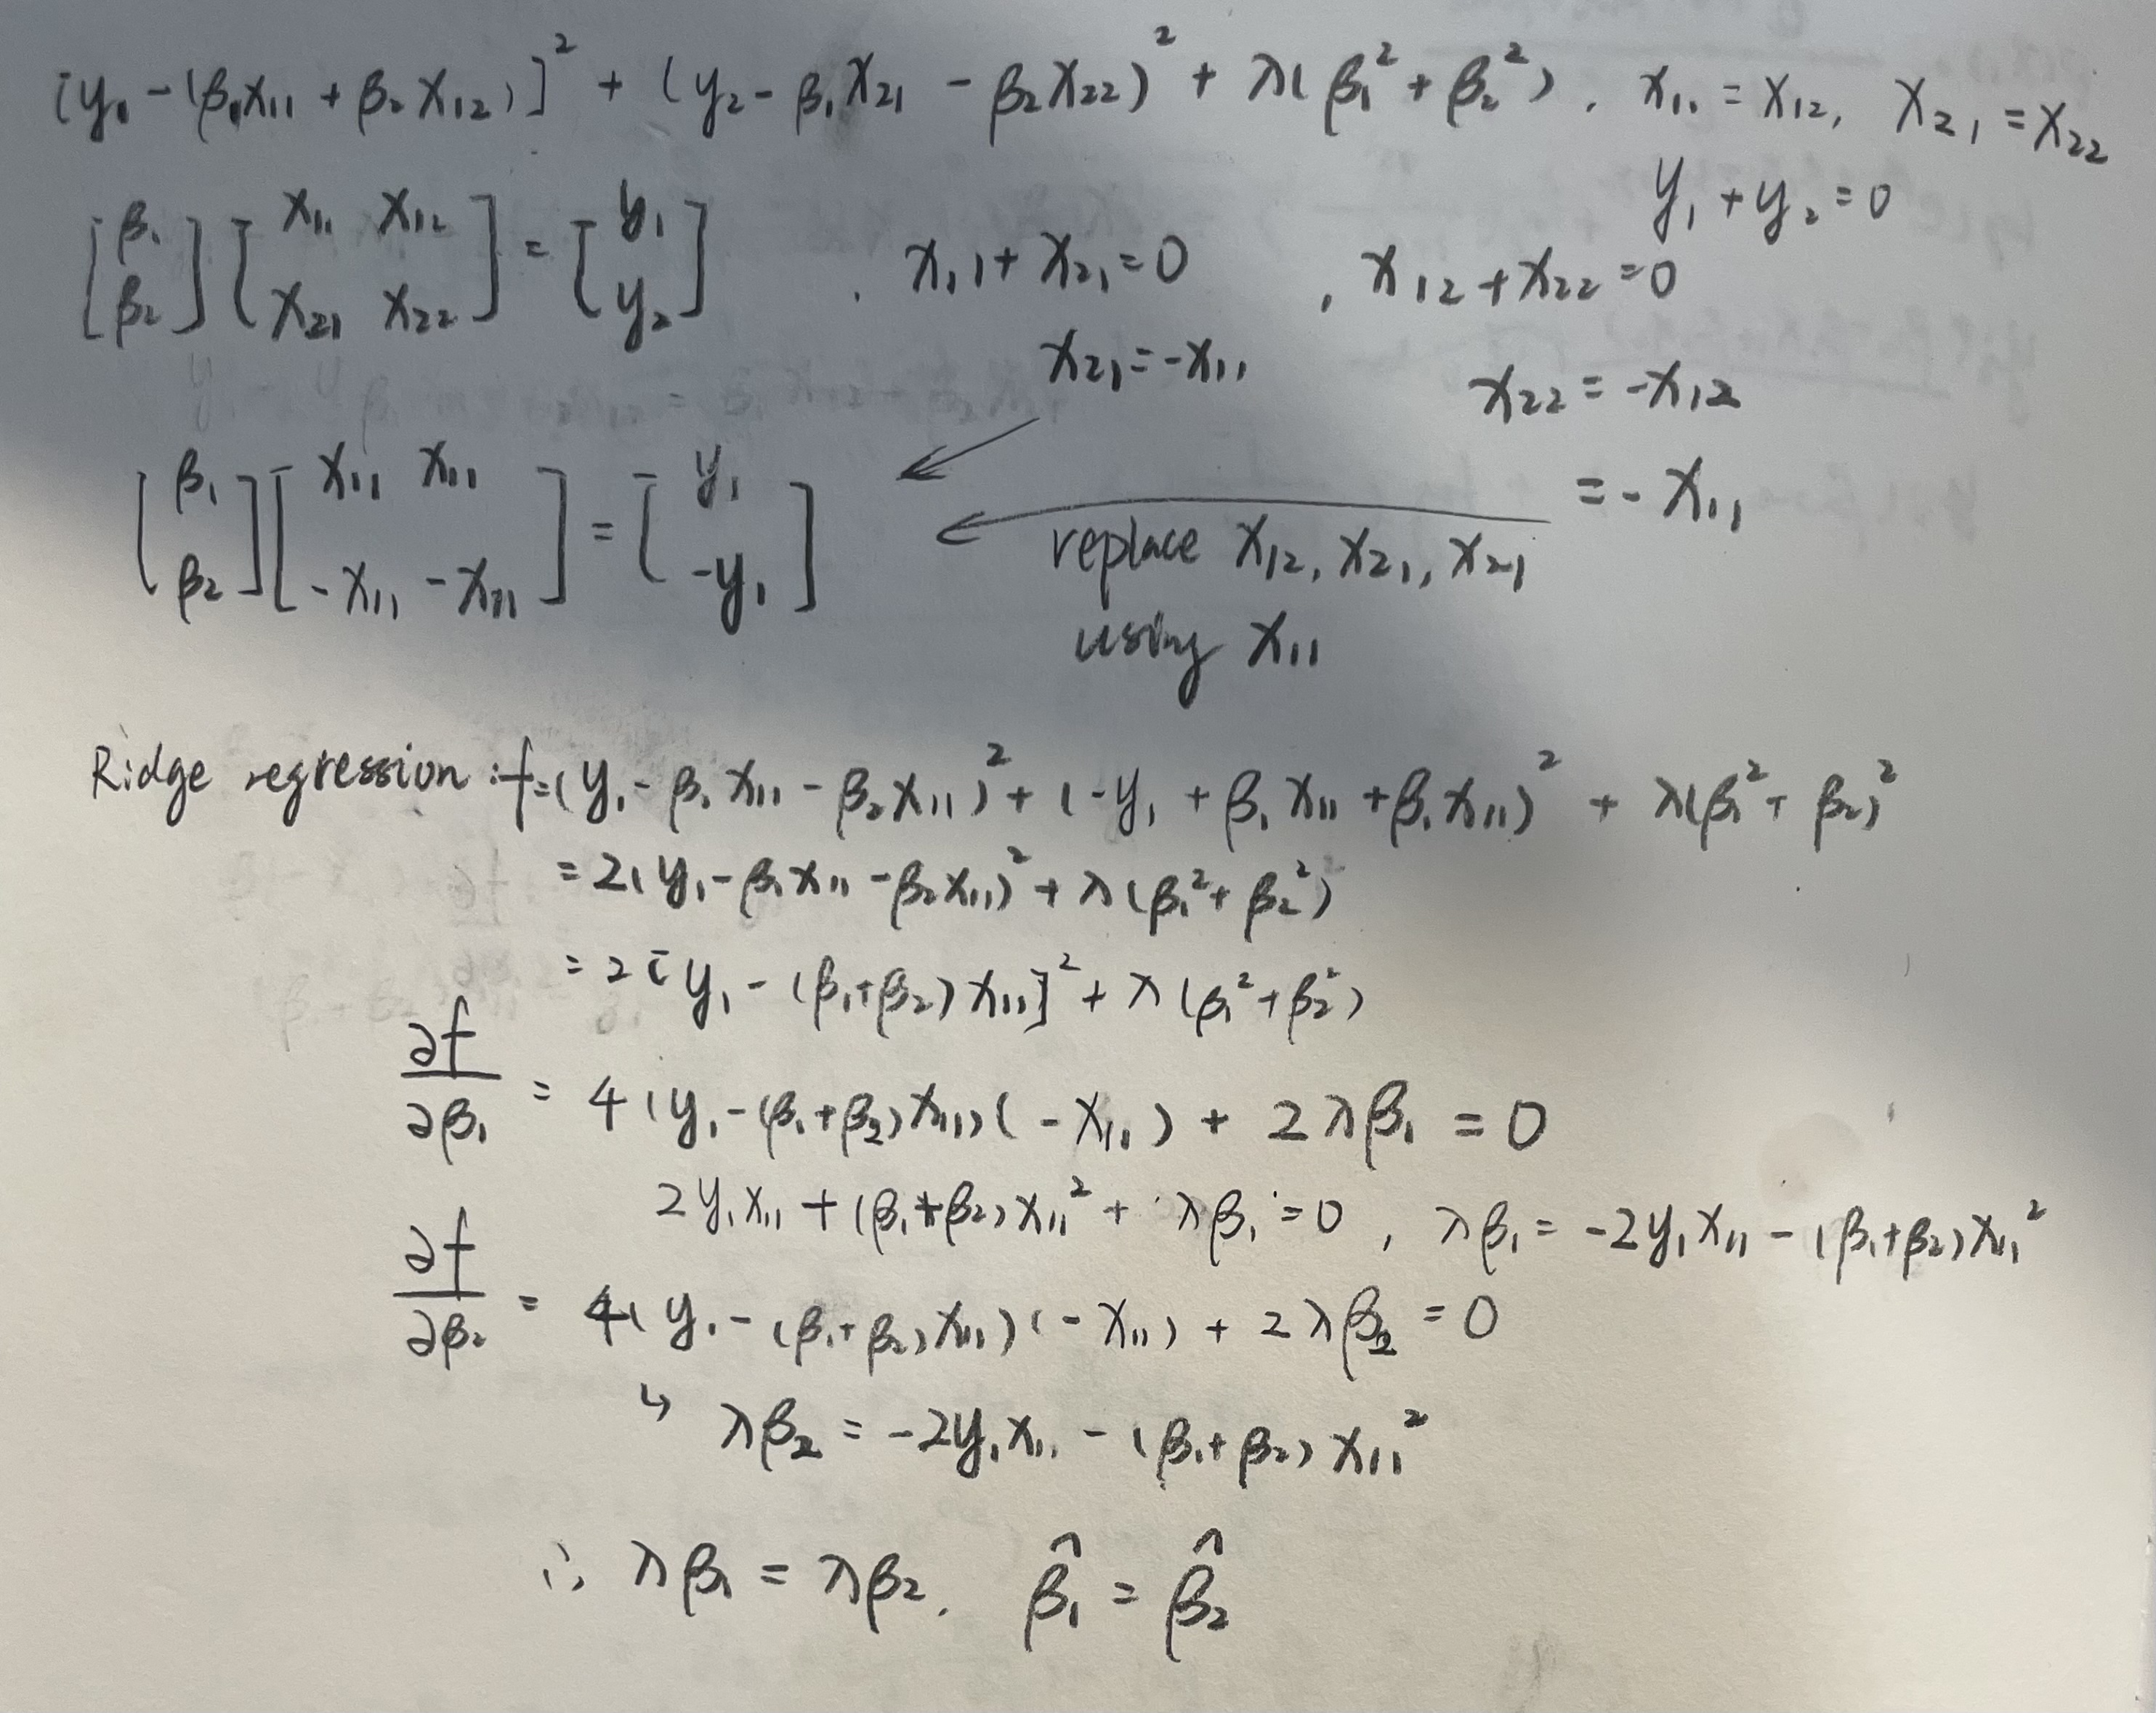 [y₁ - (β₁x₁₁ + β₂x₁₂)]² + (y₂ - β₁x₂₁ - β₂x₂₂)² + λ(β₁² + β₂²), x₁₁ = x₁₂, x₂₁ = x₂₂
y₁ + y₂ = 0
[β₁ β₂] [x₁₁ x₁₂ x₂₁ x₂₂] = [y₁ y₂] , x₁₁ + x₂₁ = 0 , x₁₂ + x₂₂ = 0
x₂₁ = -x₁₁ x₂₂ = -x₁₂
= -x₁₁
[β₁ β₂] [x₁₁ x₁₁ -x₁₁ -x₁₁] = [y₁ -y₁] ← replace x₁₂, x₂₁, x₂₁
using x₁₁
Ridge regression: f = (y₁ - β₁x₁₁ - β₂x₁₁)² + (-y₁ + β₁x₁₁ + β₁x₁₁)² + λ(β₁² + β₂)²
= 2(y₁ - β₁x₁₁ - β₂x₁₁)² + λ(β₁² + β₂²)
= 2[y₁ - (β₁+β₂)x₁₁]² + λ(β₁² + β₂²)
∂f/∂β₁ = 4(y₁ - (β₁+β₂)x₁₁)(-x₁₁) + 2λβ₁ = 0
2y₁x₁₁ + (β₁+β₂)x₁₁² + λβ₁ = 0, λβ₁ = -2y₁x₁₁ - (β₁+β₂)x₁₁²
∂f/∂β₂ = 4(y₁ - (β₁+β₂)x₁₁)(-x₁₁) + 2λβ₂ = 0
↳ λβ₂ = -2y₁x₁₁ - (β₁+β₂)x₁₁²
∴ λβ₁ = λβ₂. β̂₁ = β̂₂